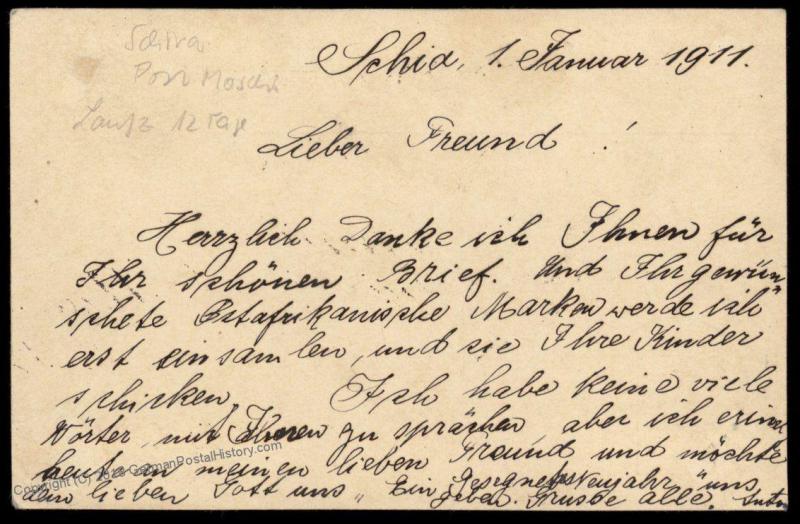 Schira
Post Moschi
Laufz 12 Tage
Schia, 1. Januar 1911.
Lieber Freund !
Herrzlich Danke ich Ihnen für
Ihr schönen Brief. Und Ihr gewün"
schete Ostafrikanische Marken werde ich
erst einsamlen, und sie Ihre Kinder
schicken. Ich habe keine viele
Wörter, mit Ihnen zu sprächen aber ich
heute an meinen lieben Freund und möchte
dem lieben Gott uns „Ein Neujahr" uns
geben. Grusse alle.
Copyright (C) 2023 GermanPostalHistory.com